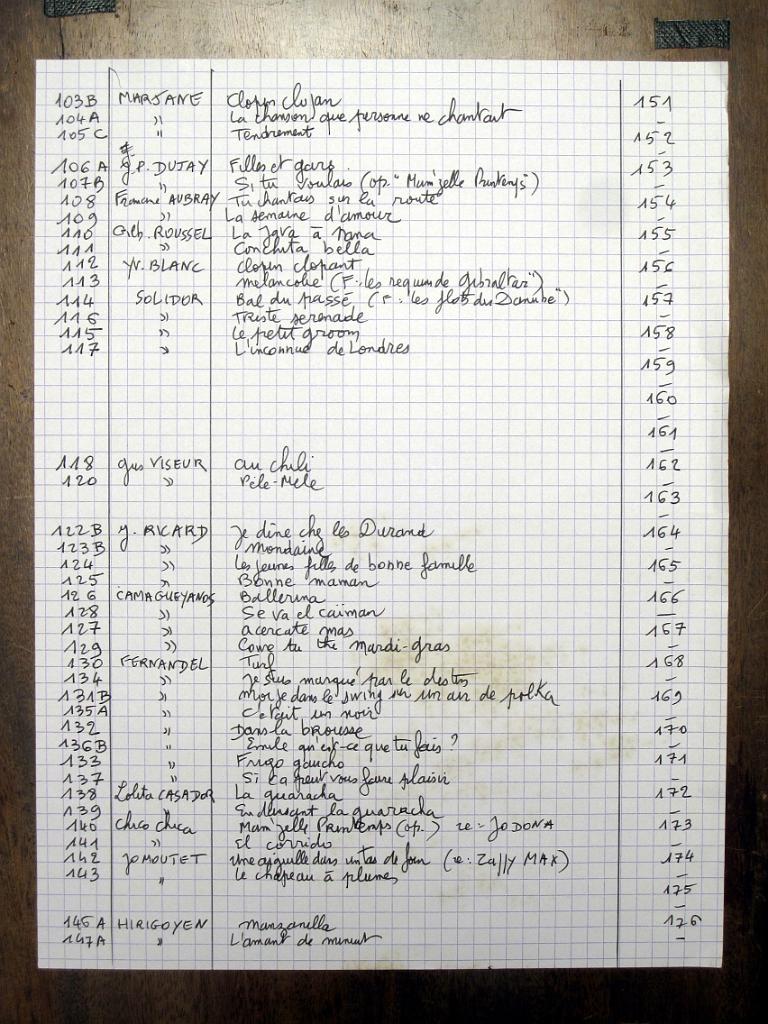 103B MARJANE Clopin Clopan 151
104A " La chanson que personne ne chantait
105C " Tendrement 152
106A J.P. DUJAY Filles et gars. 153
107B " Si tu voulais (op. "Mam'zelle Printemps")
108 Francine AUBRAY Tu chantais sur la route 154
109 " La semaine d'amour
110 Gilb. ROUSSEL La Java à Nana 155
111 " Conchita bella
112 YV. BLANC Clopin clopant 156
113 melancolie (F: les requins de Gibraltar")
114 SOLIDOR Bal du passé (F: "les flots du Danube") 157
116 " Triste serenade
115 " Le petit groom 158
117 " L'inconnue de Londres
159
160
161
118 gus VISEUR au chili 162
120 " Pêle-Mele
163
122B Y. RICARD Je dine chez les Durand 164
123B " Mondaine
124 " Les jeunes filles de bonne famille 165
125 " Bonne maman
126 CAMAGUEYANOS Ballerina 166
128 " Se va el caïman
127 " acercate mas 167
129 " Come tu the mardi-gras
130 FERNANDEL Turf 168
134 " Je suis marqué par le destin
131B " Moi je dans le swing sur un air de polka 169
135A " C'etait un noir
132 " Dans la brousse 170
136B " Emile qu'est-ce que tu fais?
133 " Frigo gaucho 171
137 " Si ça peut vous faire plaisir
138 Lolita CASADOR La guaracha 172
139 " En dansant la guaracha
140 Chico Chica Mam'zelle Printemps (op.) re: JO DONA 173
141 " El corrido
142 JO MOUTET Une aiguille dans un tas de foin (re: Zappy MAX) 174
143 " le chapeau à plumes
175
145A HIRIGOYEN Manzanilla 176
147A " L'amant de minuit